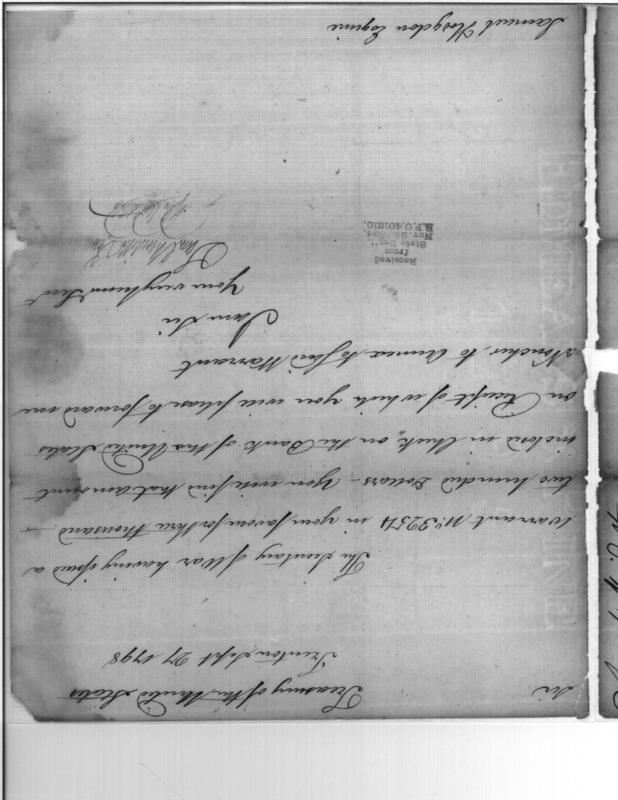 Sir
Treasury of the United States
Trenton Sept 27 1798
The Secretary of War having issued a
Warrant No. 3254 in your favour for three thousand
two hundred Dollars - you will find that amount
inclosed in Check on the Bank of the United States
on Receipt of which you will please to forward me
Voucher, to Annex to said Warrant
I am Sir
Your very humle Servt
Received
from
State Dep't
Nov. 24, 1894
R.P.O. 401810.
Samuel Hodgdon Esquire